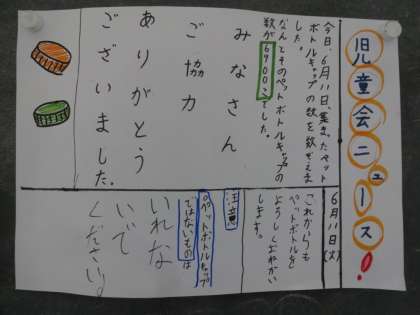 児童会ニュース!
6月11日(火)
今日、6月11日、集またペット
ボトルキャップの数を数ぎえま
した。
なんとそのペットボトルキャップの
数が6900こでした。
みなさん
ご協力
ありがとう
ございました。
これからも
ペットボトルを
よろしくおねがい
します。
注意
○ペットボトルキャップ
ではないものは
いれな
いで
ください。